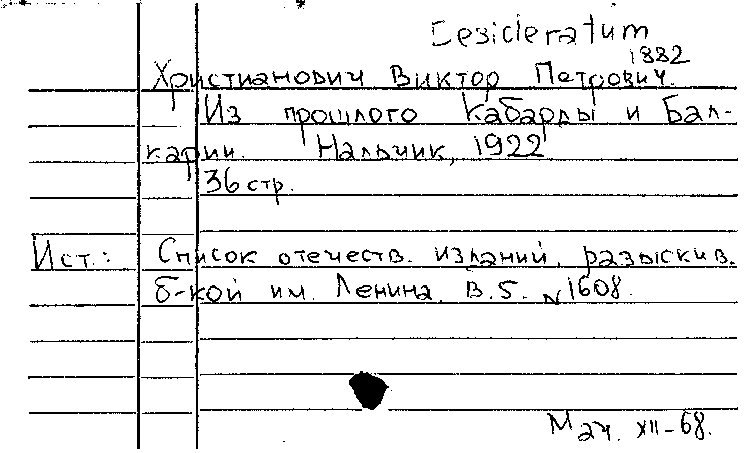 Desideratum
1882
Христианович Виктор Петрович.
Из прошлого Кабарды и Бал-
карии. Нальчик, 1922
36 стр.
Ист.: Список отечеств. изданий, разыскив.
б-кой им. Ленина. В.5. N1608.
XII-68.